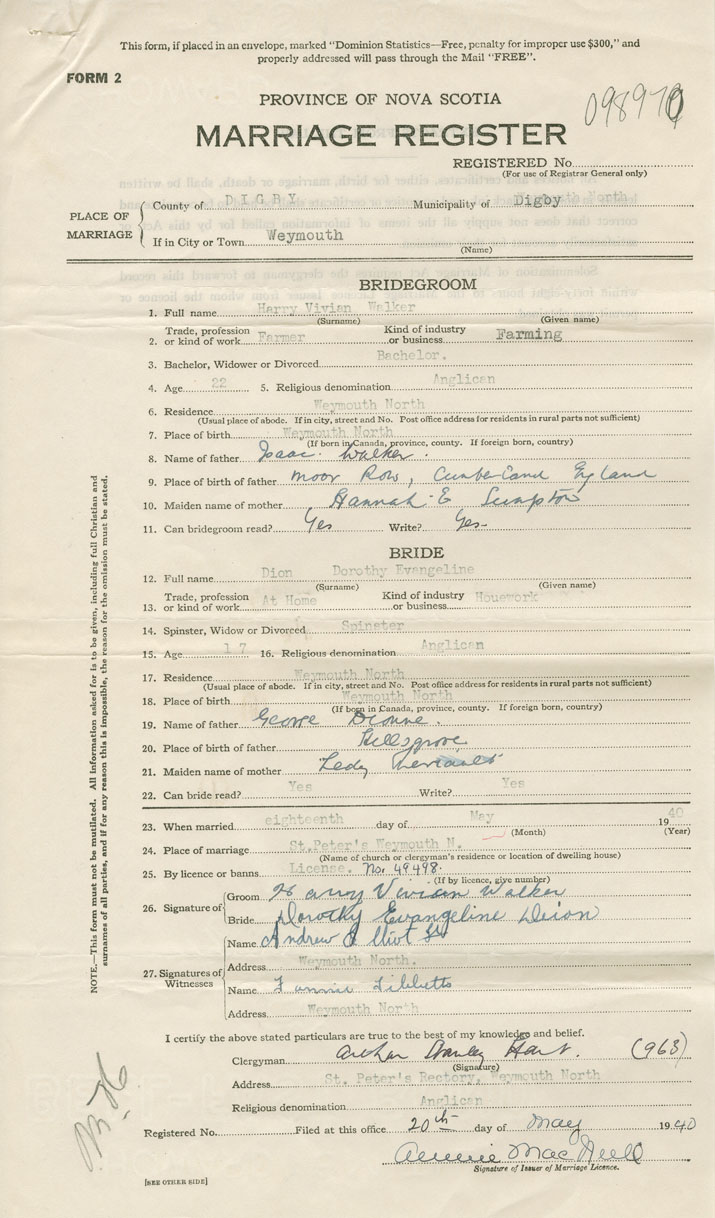 This form, if placed in an envelope, marked "Dominion Statistics—Free, penalty for improper use $300," and
properly addressed will pass through the Mail "FREE".
FORM 2
PROVINCE OF NOVA SCOTIA
098970
MARRIAGE REGISTER
REGISTERED No.
(For use of Registrar General only)
PLACE OF MARRIAGE
County of DIGBY Municipality of Digby
If in City or Town Weymouth
(Name)
BRIDEGROOM
1. Full name Harry Vivian Walker
(Surname) (Given name)
2. Trade, profession or kind of work Farmer Kind of industry or business Farming
3. Bachelor, Widower or Divorced Bachelor.
4. Age 22 5. Religious denomination Anglican
6. Residence Weymouth North
(Usual place of abode. If in city, street and No. Post office address for residents in rural parts not sufficient)
7. Place of birth Weymouth North
(If born in Canada, province, county. If foreign born, country)
8. Name of father Isaac Walker.
9. Place of birth of father Moor Row, Cumberland England
10. Maiden name of mother Hannah E Sumpton
11. Can bridegroom read? Yes Write? Yes-
BRIDE
12. Full name Dion Dorothy Evangeline
(Surname) (Given name)
13. Trade, profession or kind of work At Home Kind of industry or business Houework
14. Spinster, Widow or Divorced Spinster
15. Age 17 16. Religious denomination Anglican
17. Residence Weymouth North
(Usual place of abode. If in city, street and No. Post office address for residents in rural parts not sufficient)
18. Place of birth Weymouth North
(If born in Canada, province, county. If foreign born, country)
19. Name of father George Dionne.
20. Place of birth of father Hillsgrove
21. Maiden name of mother
22. Can bride read? Yes Write? Yes
23. When married eighteenth day of May 1940
(Month) (Year)
24. Place of marriage St.Peter's Weymouth N.
(Name of church or clergyman's residence or location of dwelling house)
25. By licence or banns License. No. 49498.
(If by licence, give number)
26. Signature of
Groom Harry Vivian Walker
Bride Dorothy Evangeline Dion
27. Signatures of Witnesses
Name Andrew Elliot Jr
Address Weymouth North.
Name Fannie Tibbetts
Address Weymouth North
I certify the above stated particulars are true to the best of my knowledge and belief.
Clergyman Arthur Stanley Hart. (963)
(Signature)
Address St. Peter's Rectory, Weymouth North
Religious denomination Anglican
Registered No. Filed at this office 20th day of May 1940
Annie MacNeill
Signature of Issuer of Marriage Licence.
[SEE OTHER SIDE]
NOTE.—This form must not be mutilated. All information asked for is to be given, including full Christian and
surnames of all parties, and if for any reason this is impossible, the reason for the omission must be stated.